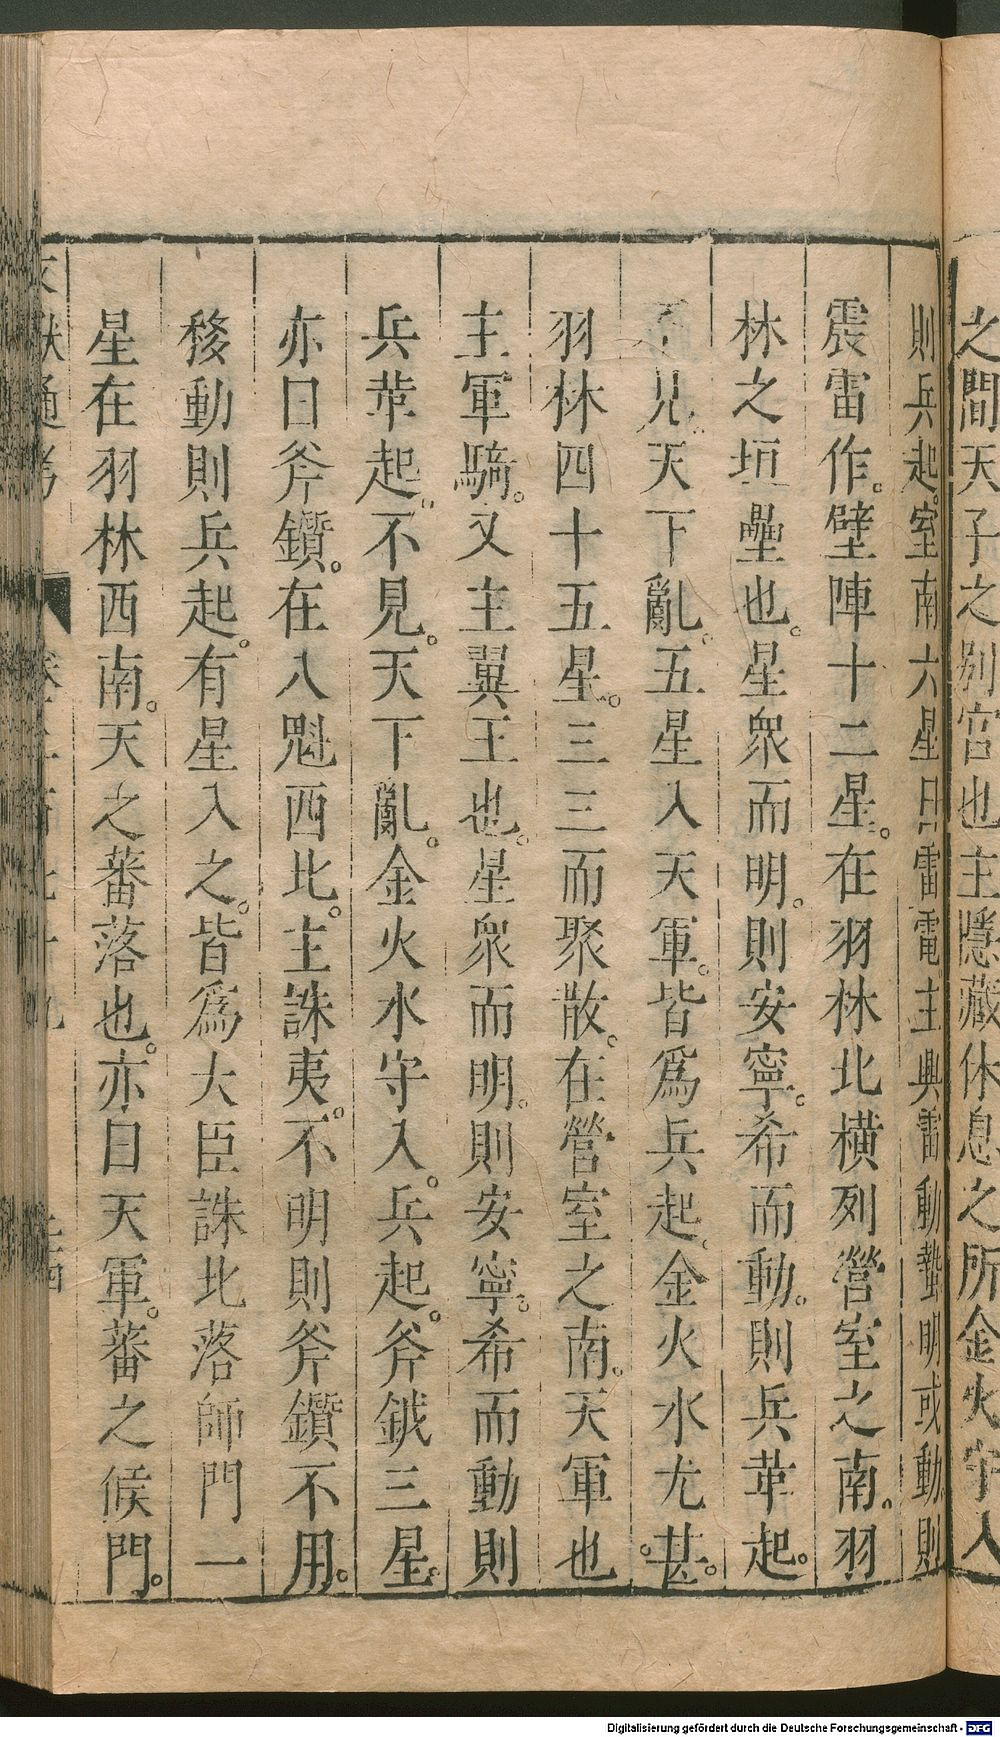 之間天子之别宫也主隱藏休息之所金火守入
則兵起。室南六星曰雷電主興雷動蟄明或動則
震雷作。壁陣十二星。在羽林北横列營室之南。羽
林之垣壘也。星衆而明。則安寧。希而動。則兵革起。
不見。天下亂。五星入天軍。皆爲兵起。金火水尤甚。
羽林四十五星。三三而聚散。在營室之南。天軍也
主軍騎。又主翼王也。星衆而明。則安寧。希而動則
兵革起。不見。天下亂。金火水守入。兵起。斧鉞三星。
亦曰斧鑕。在八魁西北。主誅夷。不明則斧鑕不用。
移動則兵起。有星入之。皆爲大臣誅北落師門一
星在羽林西南。天之蕃落也。亦曰天軍。蕃之候門。
文獻通考
Digitalisierung gefördert durch die Deutsche Forschungsgemeinschaft - DFG